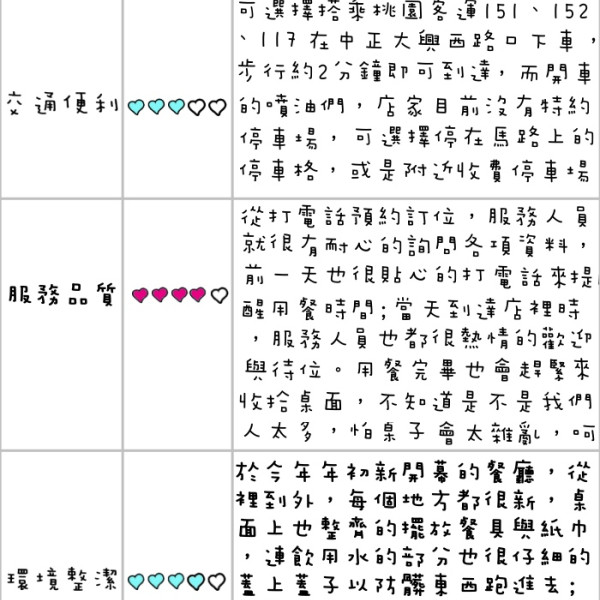 可選擇搭乘桃園客運151、152
、117在中正大興西路口下車，
步行約2分鐘即可到達，而開車
的噴油們，店家目前沒有特約
停車場，可選擇停在馬路上的
停車格，或是附近收費停車場
交通便利
從打電話預約訂位，服務人員
就很有耐心的詢問各項資料，
前一天也很貼心的打電話來提
醒用餐時間;當天到達店裡時
，服務人員也都很熱情的歡迎
與待位。用餐完畢也會趕緊來
收拾桌面，不知道是不是我們
人太多，怕桌子會太雜亂，呵
服務品質
於今年年初新開幕的餐廳，從
裡到外，每個地方都很新，桌
面上也整齊的擺放餐具與紙巾
，連飲用水的部分也很仔細的
蓋上蓋子以防髒東西跑進去;
環境整潔